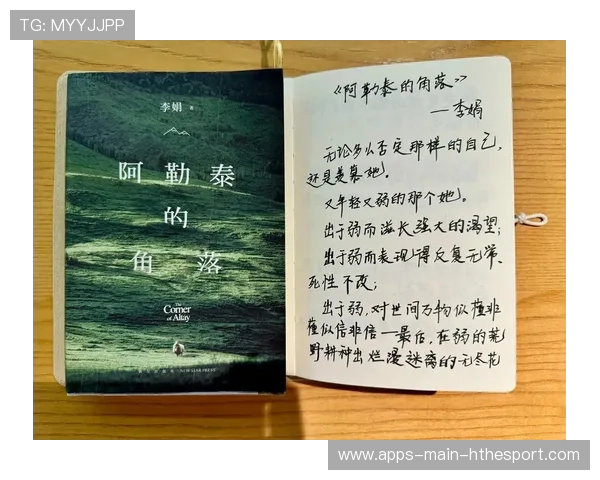 TG: MYYJJPP
李娟 著
阿勒泰
的
角落
The
Corner
of Altay
《阿勒泰的角落》
——李娟
无论多么否定那样的自己,
还是羡慕她。
又年轻又弱的那个她。
出于弱而滋长强大的渴望;
出于弱而表现得反复无常、
死性不改;
出于弱,对世间万物似懂非
懂似信非信——最后,在弱的荒
野耕种出烂漫迷离的无尽花
www.apps-main-hthesport.com